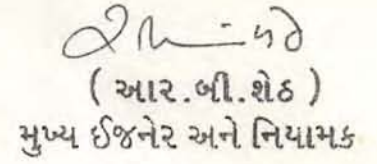 ( આર.બી.શેઠ )
મુખ્ય ઈજનેર અને નિયામક